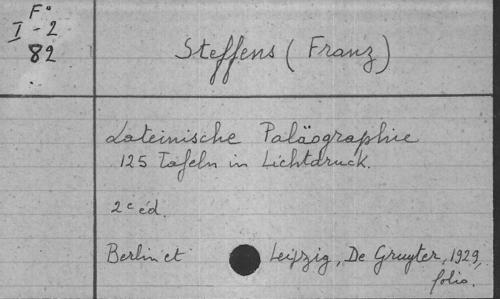 F°
I - 2
82
Steffens (Franz)
Lateinische Paläographie
125 Tafeln in Lichtdruck.
2e éd.
Berlin et Leipzig, De Gruyter, 1929,
folio.